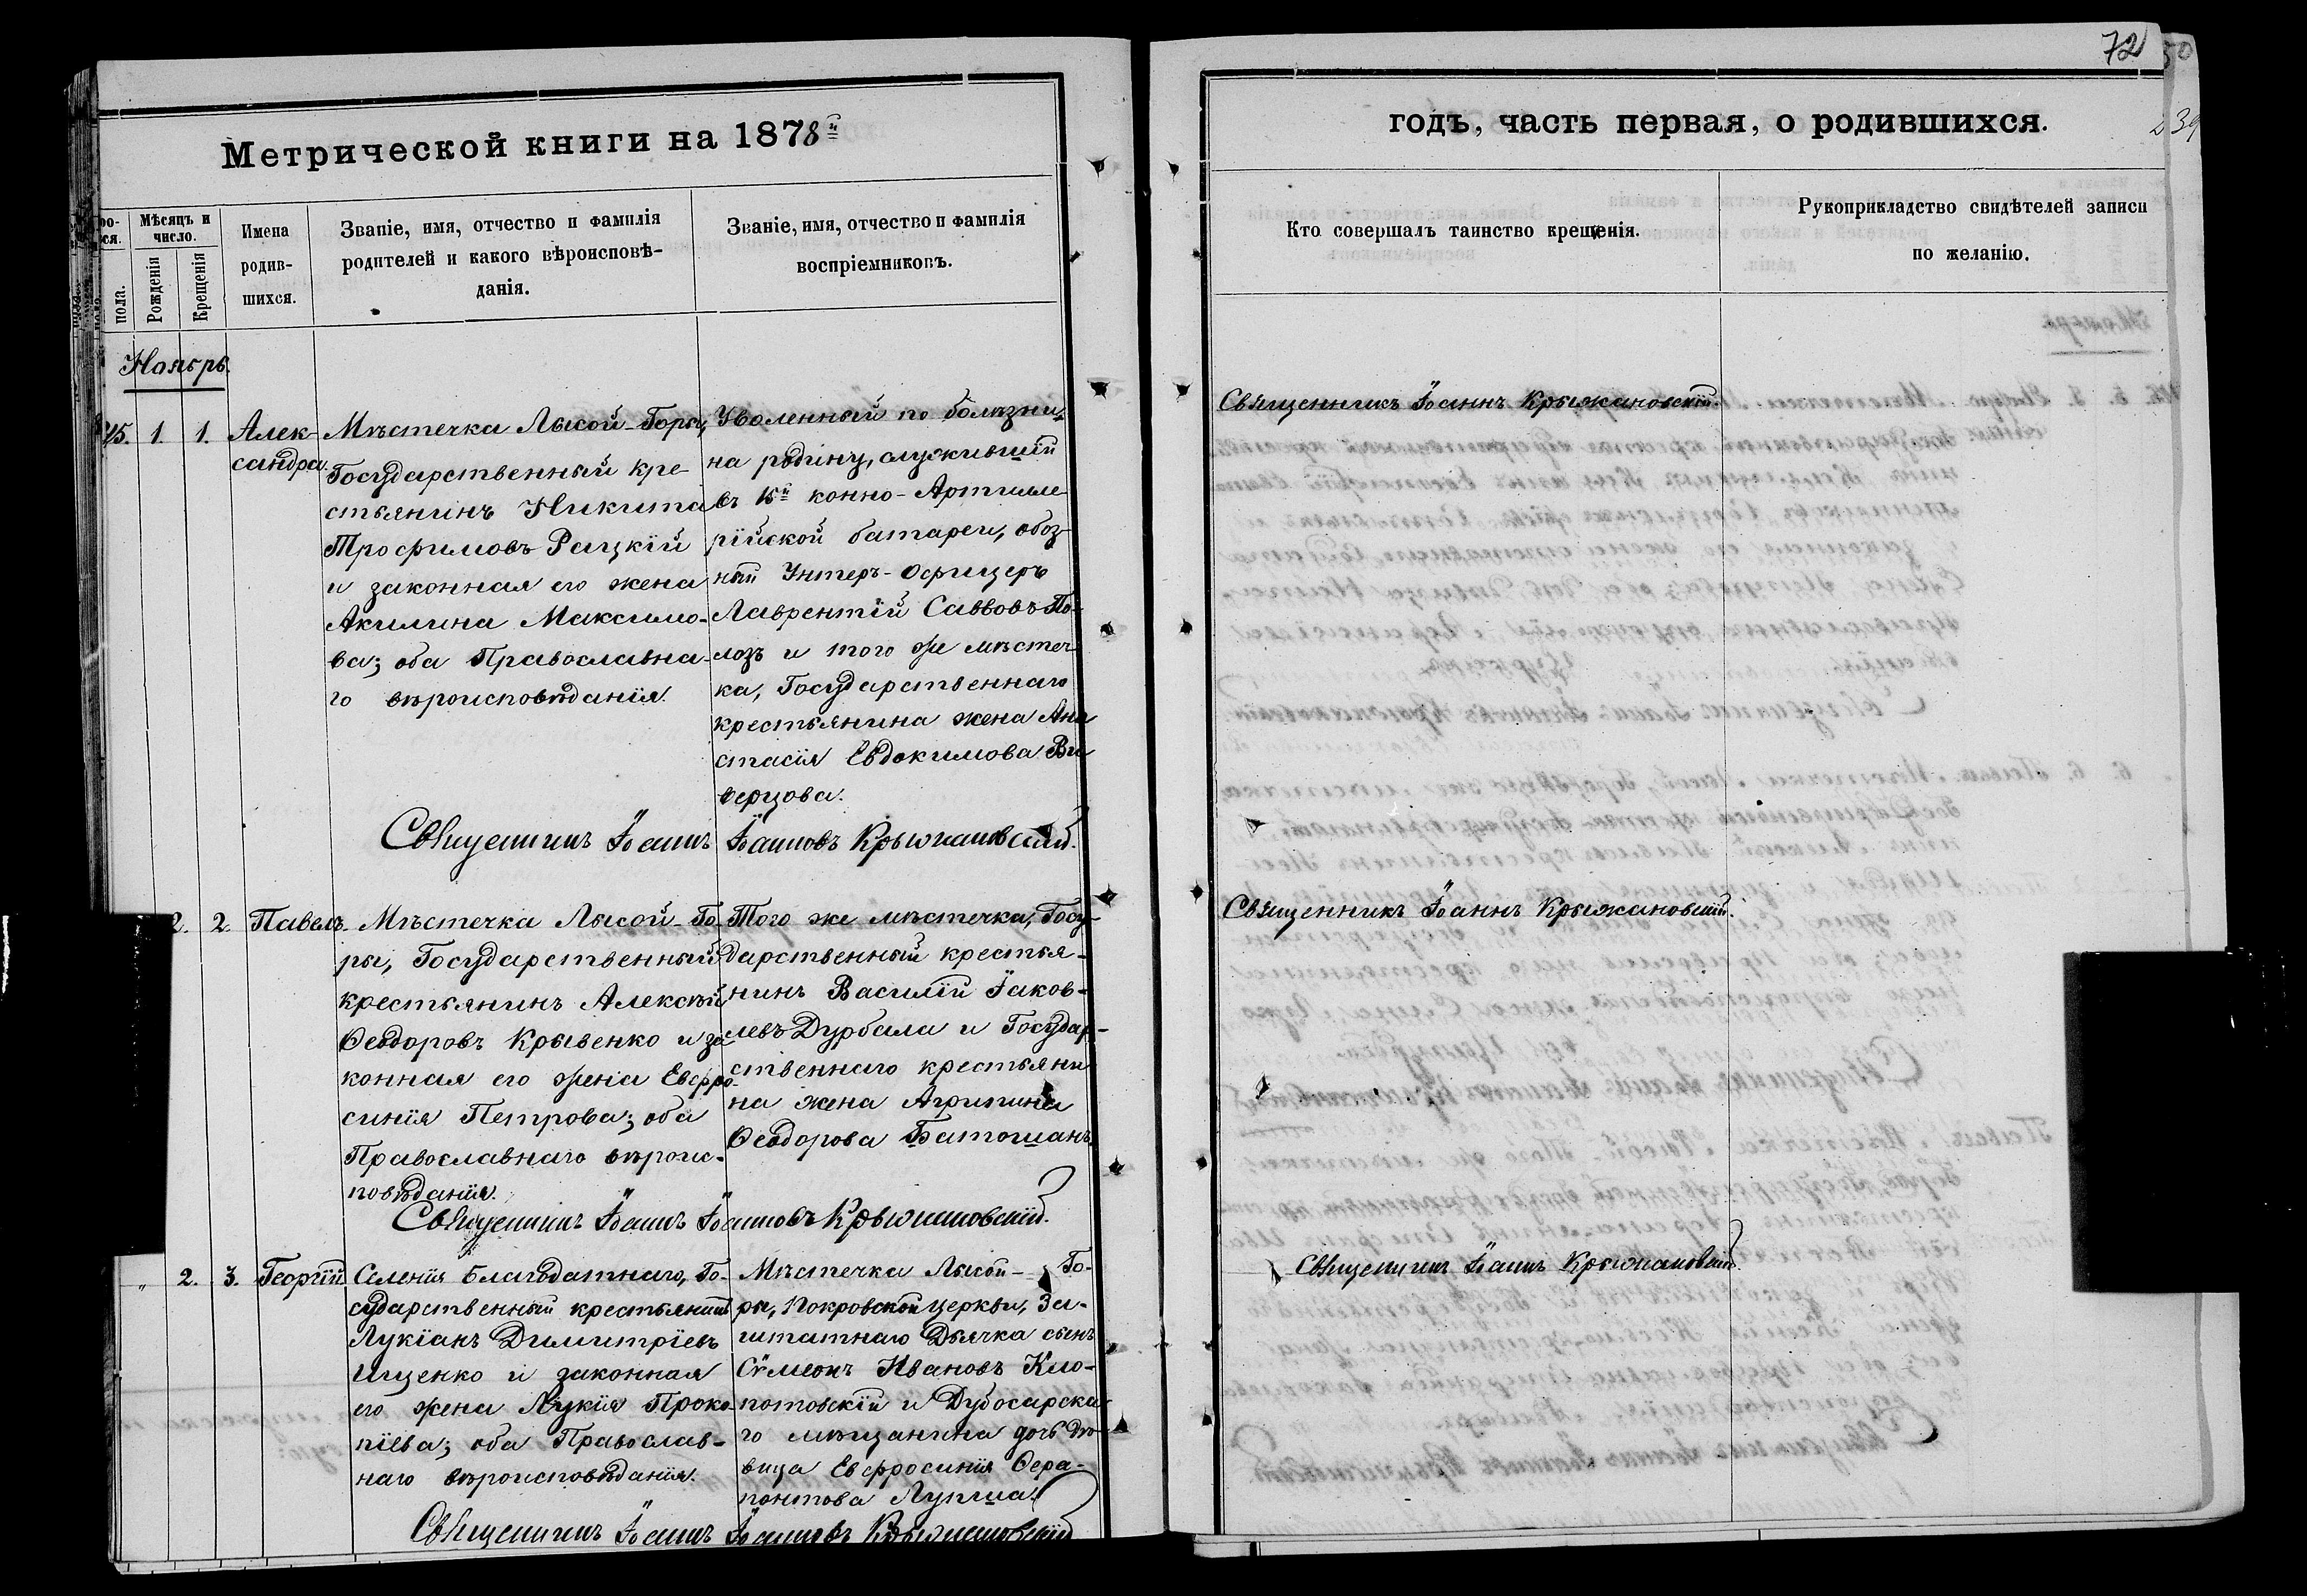 72
50
239
Метрической книги на 1878й
годъ, часть первая, о родившихся.
ро-
ся.
пола.
Мѣсяцъ и
число.
Рожденія
Крещенія
Имена
родив-
шихся.
Званіе, имя, отчество и фамилія
родителей и какого вѣроисповѣ-
данія.
Званіе, имя, отчество и фамилія
воспріемниковъ.
Кто совершалъ таинство крещенія.
Рукоприкладство свидѣтелей записи
по желанію.
Ноябрь.
1. 1.
Алек-
сандра.
Мѣстечка Лысой-Горы,
Государственный кре-
стьянинъ Никита
Трофимовъ Рецкій
и законная его жена
Акилина Максимо-
ва; оба Православна-
го вѣроисповѣданія.
Уволенный по болѣзни,
на родину, служившій
въ 15й конно-Артилле
рійской батареи, обоз-
ный Унтеръ-Офицеръ
Лаврентій Саввовъ По-
лозъ и того же мѣстеч
ка, Государственнаго
крестьянина жена Ана
стасія Евдокимова Ви
верцова.
Священникъ Іоаннъ Крыжановскій.
Священникъ Іоаннъ Іоанновъ Крыжановскій.
2. 2.
Павелъ
Мѣстечка Лысой-Го-
ры, Государственный
крестьянинъ Алексѣй
Ѳеодоровъ Крывенко и за
конная его жена Евфро-
синія Петрова; оба
Православнаго вѣроис-
повѣданія.
Того же мѣстечка, Госу-
дарственный крестья-
нинъ Василій Іаков-
левъ Дурбала и Государ-
ственнаго крестьяни
на жена Агрипина
Ѳеодорова Батошанъ
Священникъ Іоаннъ Крыжановскій.
Священникъ Іоаннъ Іоанновъ Крыжановскій.
„ 2. 3.
Георгій.
Селенія Благодатнаго, Го-
сударственный крестьянинъ
Лукіанъ Димитріевъ
Ищенко и законная
его жена Лукія Проко-
піева; оба Православ-
наго вѣроисповѣданія.
Мѣстечка Лысой-Го-
ры, Покровской церкви, За-
штатнаго Дьячка сынъ
Сѵмеонъ Ивановъ Кло-
потовскій и Дубосарска
го мѣщанина дочь дѣ-
вица Евфросинія Ѳера-
понтова Лупша.
Священникъ Іоаннъ Крыжановскій.
Священникъ Іоаннъ Іоанновъ Крыжановскій